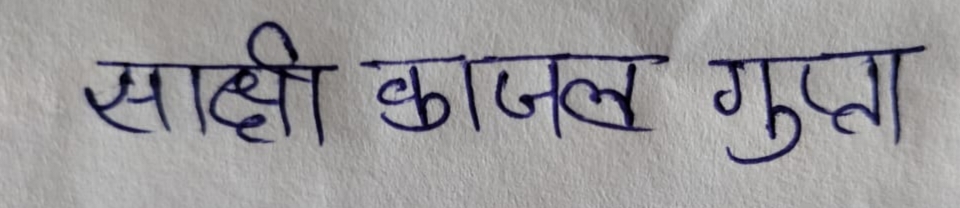 साक्षी काजल गुप्ता